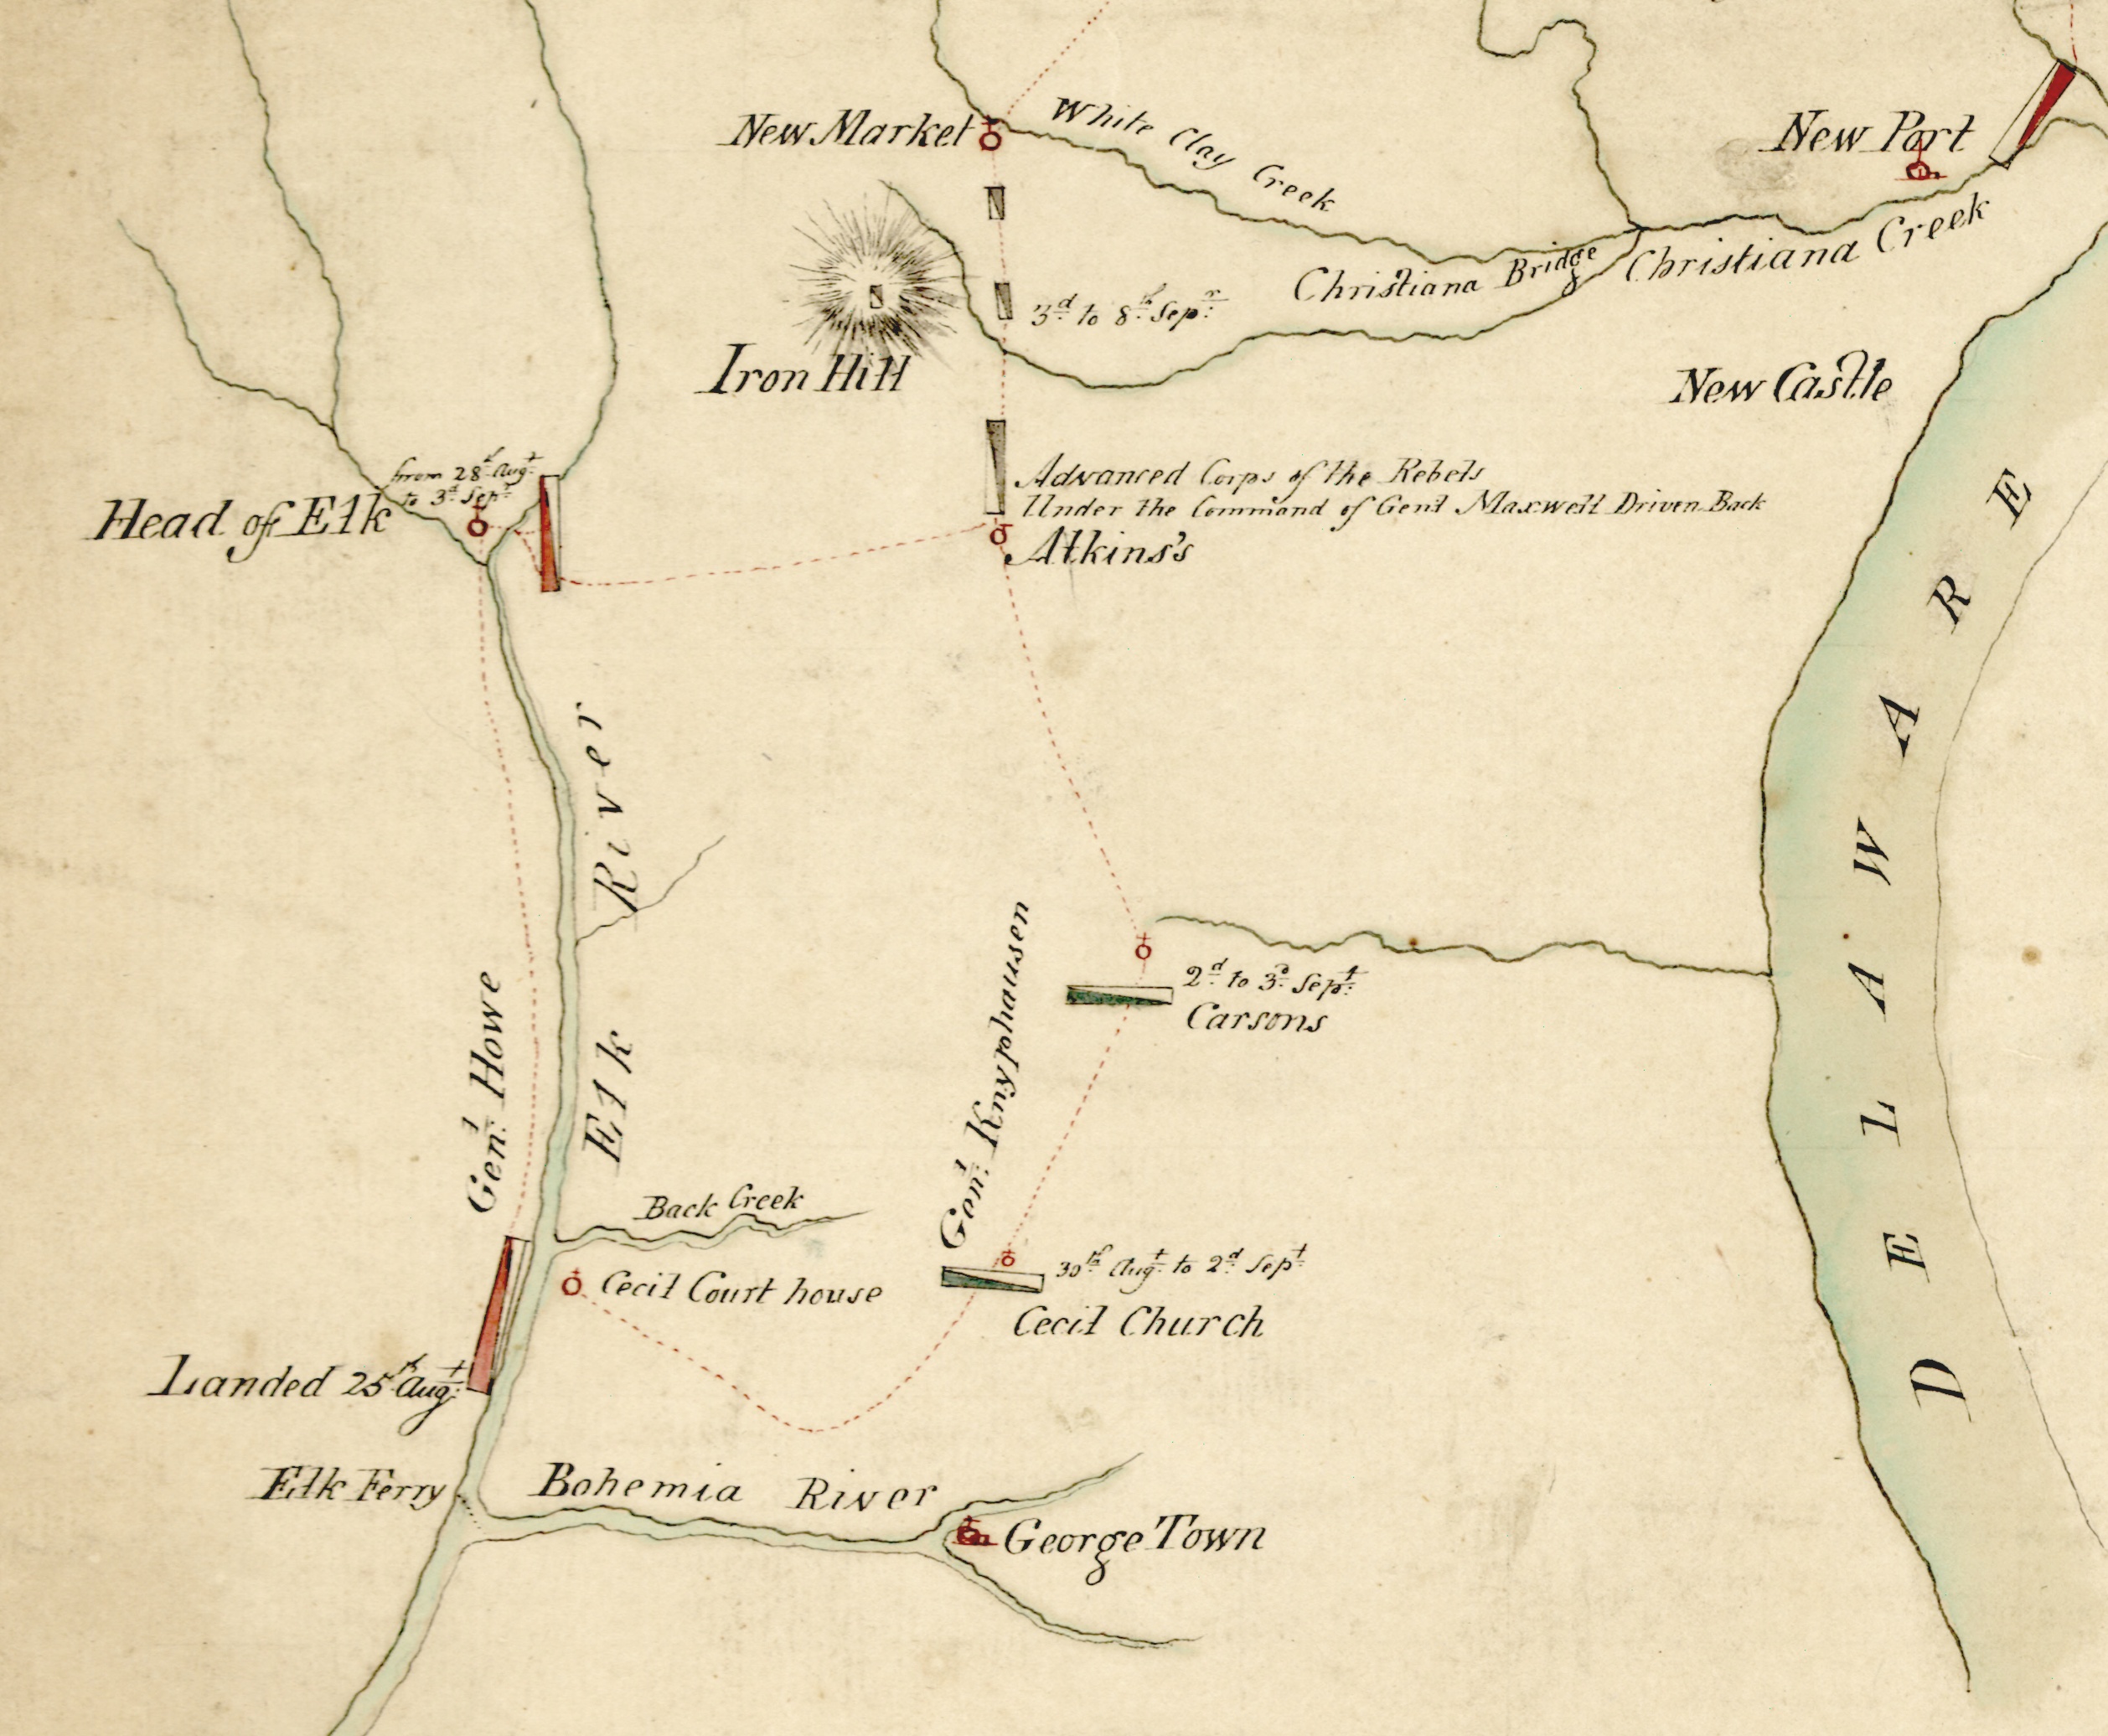 New Market
White Clay Creek
New Port
Christiana Bridge
Christiana Creek
3d to 8th Sepr
Iron Hill
New Castle
from 28th Augt
to 3d Sept
Head of Elk
Advanced Corps of the Rebels
Under the Command of Genl Maxwell Driven Back
Atkins's
DELAWARE
Elk River
2d to 3d Sept
Carsons
Genl Howe
Genl Knyphausen
Back Creek
Cecil Court house
30th Augt to 2d Sept
Cecil Church
Landed 25th Augt
Elk Ferry
Bohemia River
George Town